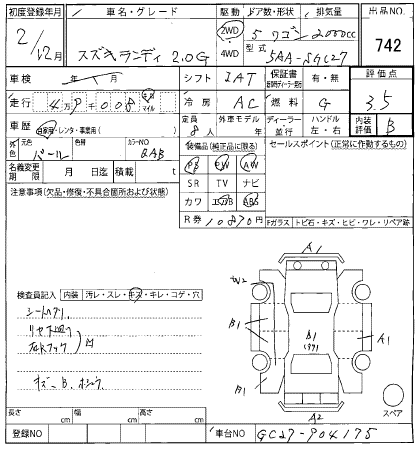 初度登録年月 車名・グレード 駆動 ドア数・形状 排気量 出品NO.
2/12月 スズキランディ 2.0G 2WD 4WD 5 ワゴン 2000cc 742
型式 5AA-SGC27
車検 年 月 シフト IAT 保証書 有・無 評価点
走行 km マイル 冷房 AC 燃料 G 3.5
車歴 自家用・レンタ・事業用( ) 定員 8人 外車モデル 年 ディーラー 並行 ハンドル 左・右 内装評価 B
外色 元色 パール 色替 カラーNO QAB
装備品(純正品に限る) セールスポイント(正常に作動するもの)
名義変更期限 月 日迄 積載 t
PS PW AW
注意事項(欠品・修復・不具合箇所および状態)
SR TV ナビ
カワ エアB ABS
R券 10870円
Fガラス トビ石・キズ・ヒビ・ワレ・リペア跡
A1
W2
検査員記入 内装 汚レ・スレ・キズ・キレ・コゲ・穴
B1 B1 A1
B1
A2
スペア
長さ cm 幅 cm 高さ cm
登録NO 車台NO GC27-904175